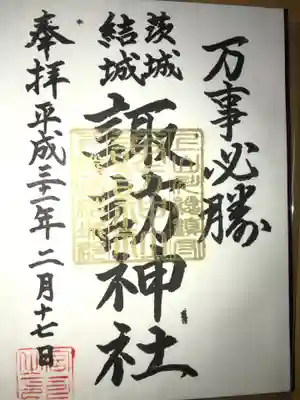 万事必勝
茨城
結城
諏訪神社
奉拝平成三十一年二月十七日